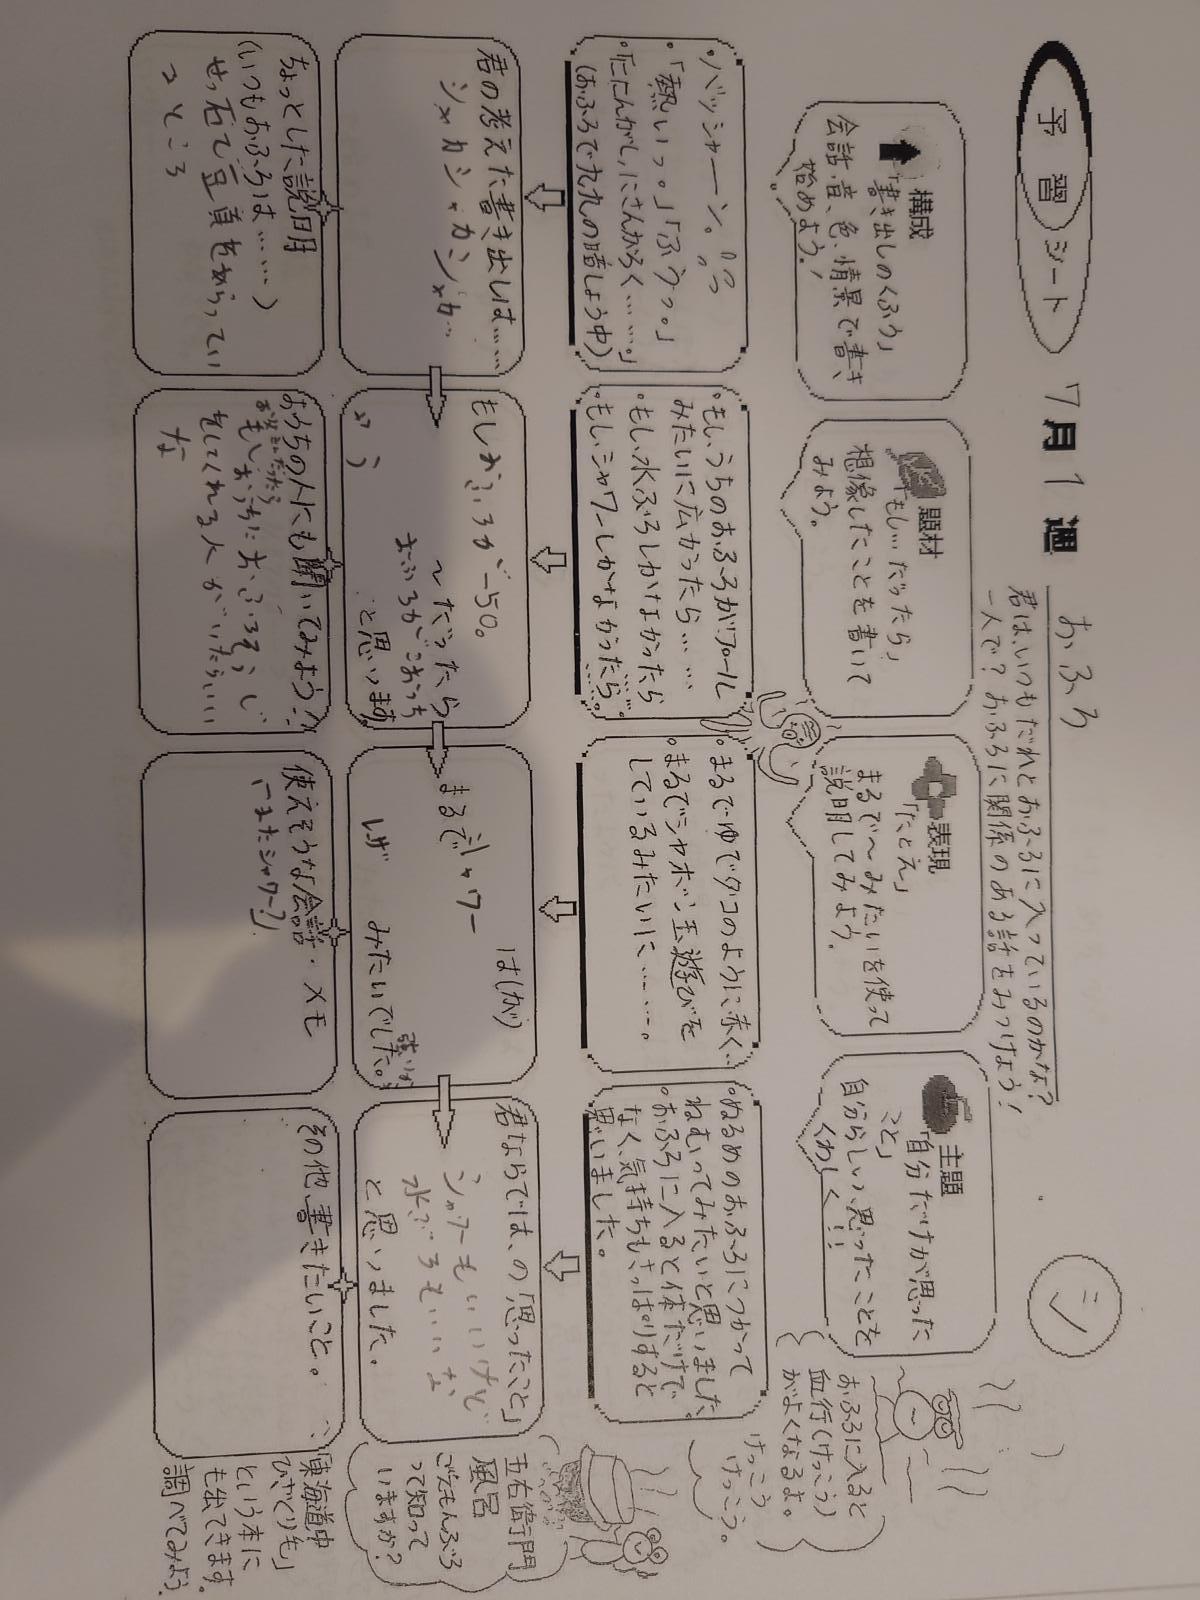 予習シート 7月1週
おふろ
君は、いつもだれとおふろに入っているのかな?
一人で? おふろに関係のある話をみつけよう!
シ
構成
「書き出しのくふう」
会話、音、色、情景で書き
始めよう!
題材
「もし…だったら」
想像したことを書いて
みよう。
表現
「たとえ」
まるで〜みたいを使って
説明してみよう。
主題
「自分だけが思った
こと」
自分らしい、思ったことを
くわしく!!
おふろに入ると
血行(けっこう)
がよくなるよ。
けっこう
けっこう。
・バッシャーン。
・「熱いっ。」「ふうっ。」
・「ににんがし、にさんがろく……。」
(おふろで九九の暗しょう中)
・もし、うちのおふろがプール
みたいに広かったら……
・もし、水ぶろしかなかったら
・もし、シャワーしかなかったら……。
・まるでゆでダコのように赤く…
・まるでシャボン玉遊びを
しているみたいに……。
・ぬるめのおふろにつかって
ねむってみたいと思いました
・おふろに入ると体だけで
なく、気持ちもさっぱりすると
思いました。
君の考えた書き出しは……
シャカシャカシャカ…
もしおふろが-50。
〜だったら
おふろがこおっち
と思います。
まるで
シャワー
は(が)
みたいでした。
君ならでは、の「思ったこと」
シャワーもいいけど
水ぶろもいいな
と思いました。
五右衛門
風呂
ごえもんぶろ
って知って
いますか?
ちょっとした説明
(いつもおふろは……)
せっ石で豆頁をあらってい
るところ
おうちの人にも聞いてみよう!
もしおうちにおふろそうじ
をしてくれる人がいたらいい
な
使えそうな会話・メモ
(「またシャワー?」)
その他、書きたいこと。
「東海道中
ひざくり毛」
という本に
も出てきます。
調べてみよう。